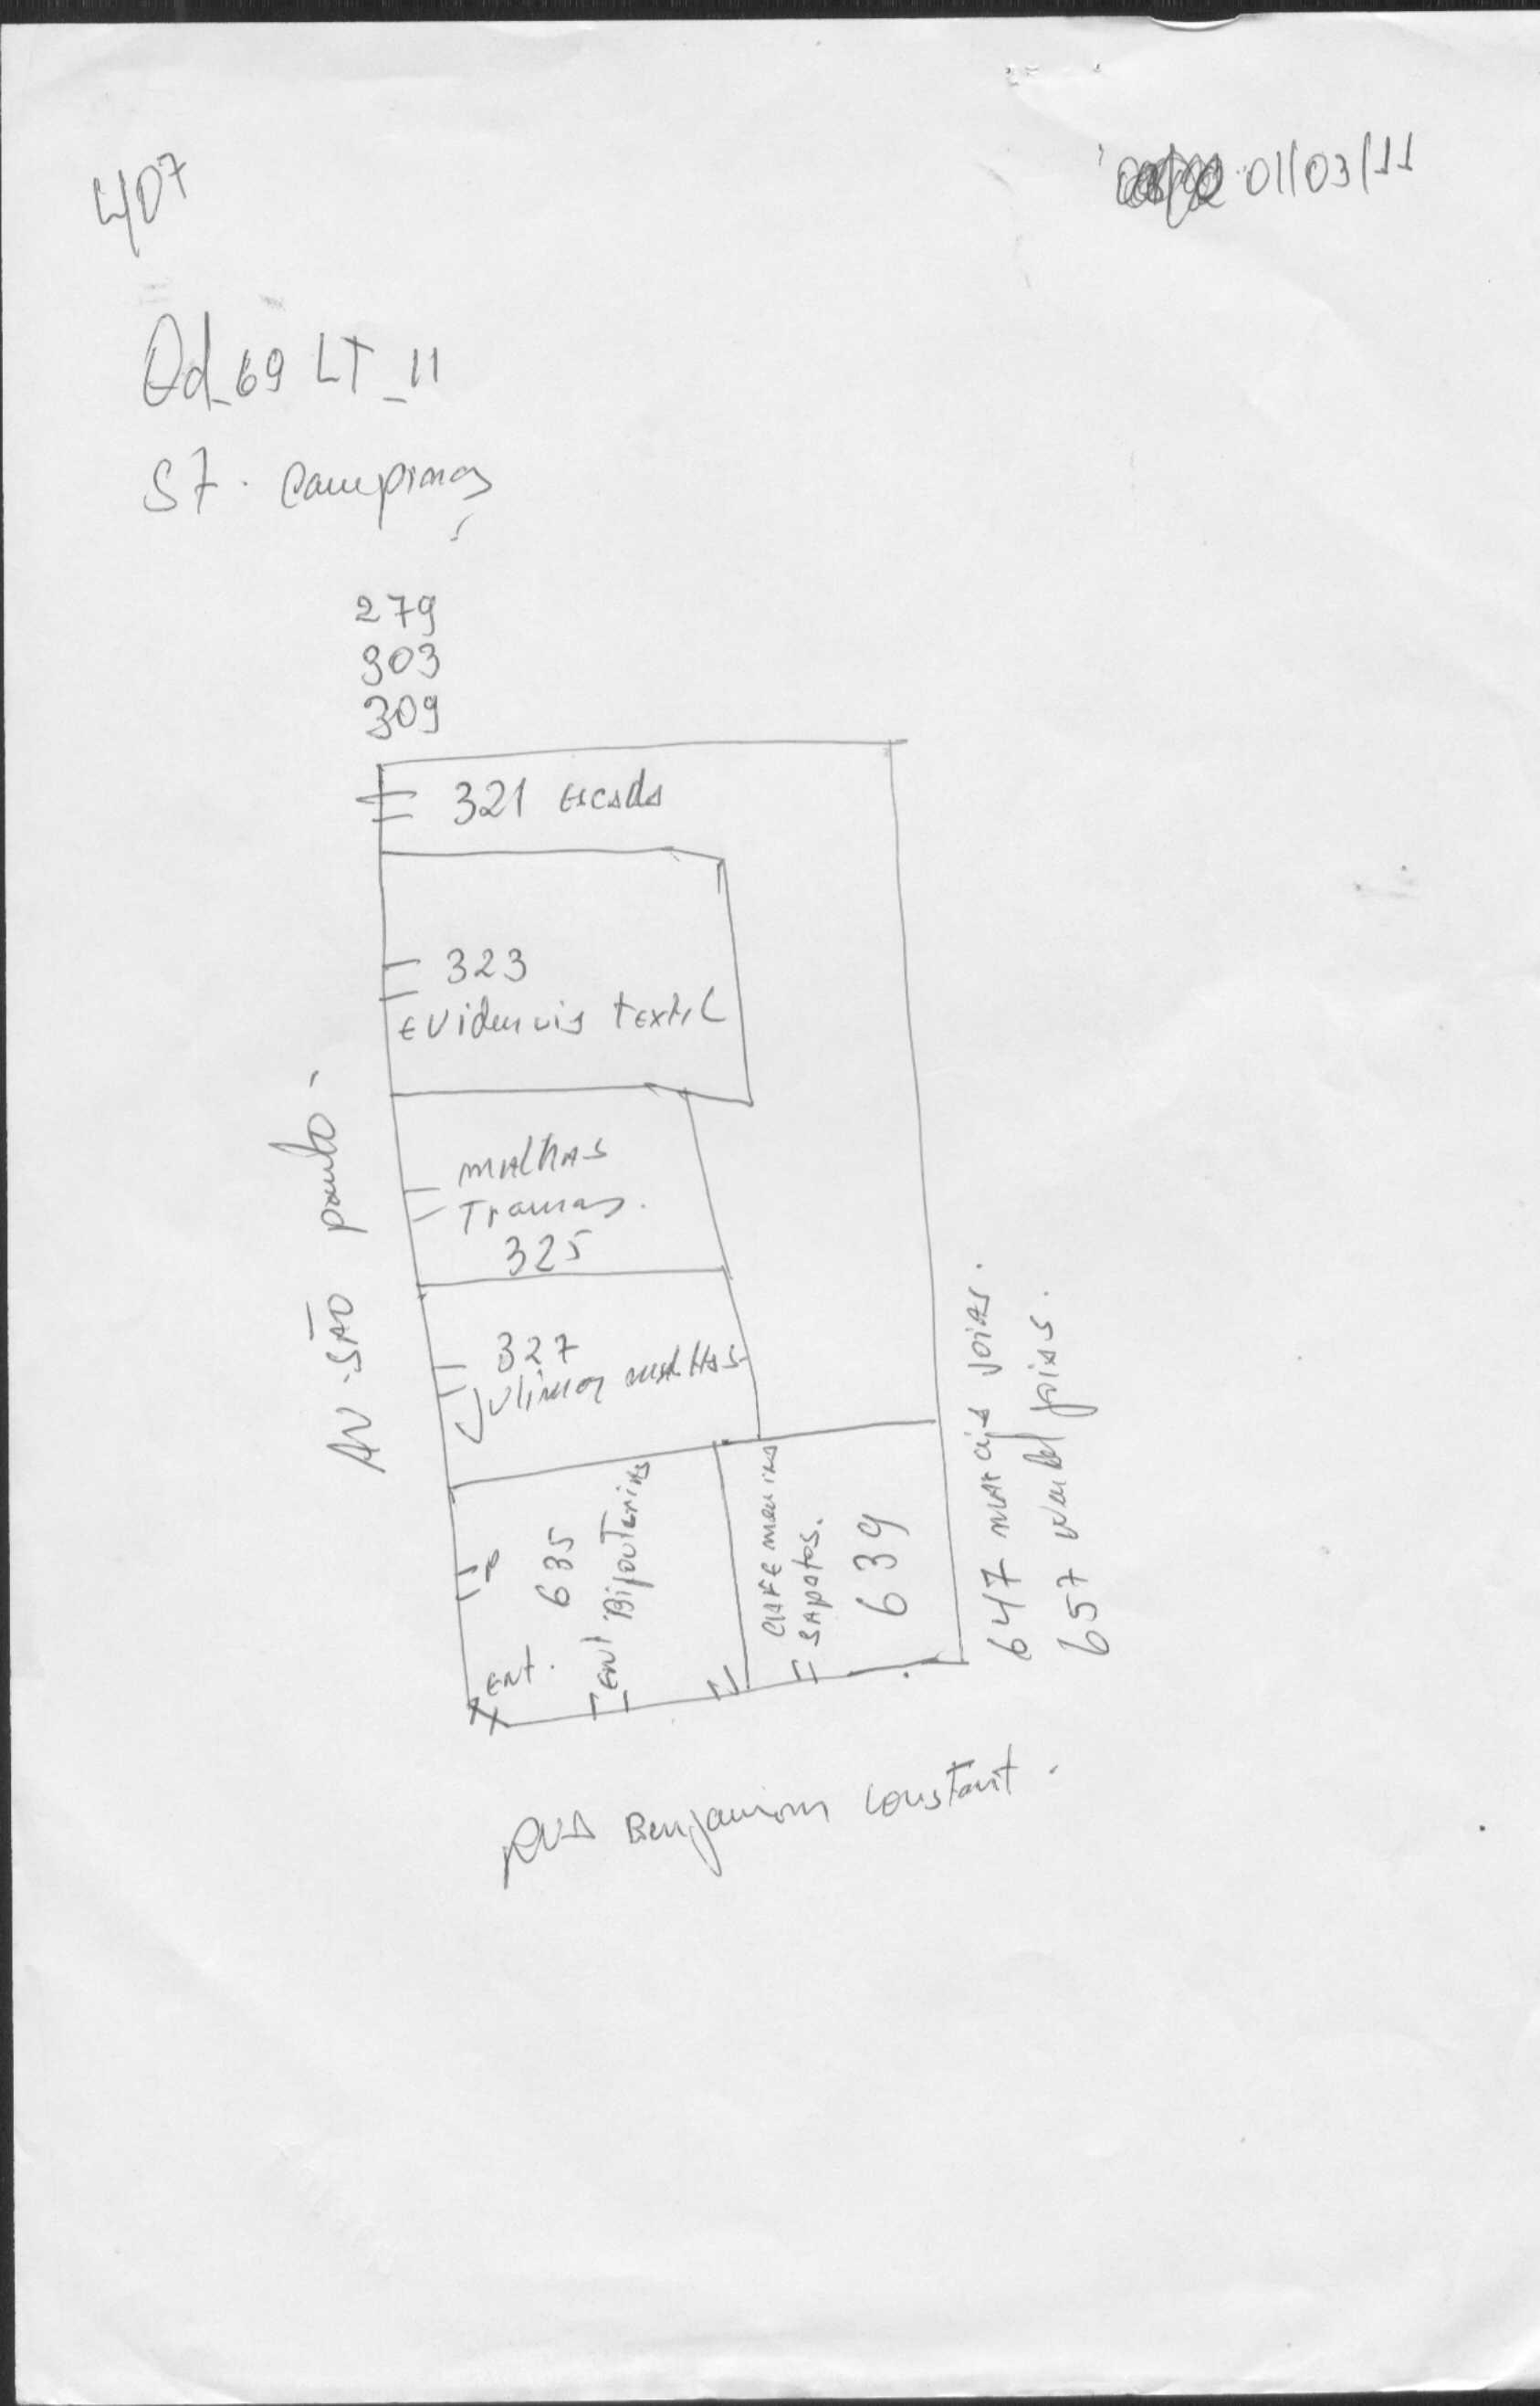 407
01/03/11
Qd_69 LT_11
ST. Campinas
279
303
309
321 escada
323
Evidencia textil
malhas
Tramas.
325
327
malhas
AV. SÃO paulo
635
Bijouterias
ENT.
ENT
sapatos.
639
647 joias.
657 joias.
RUA Benjamim Constant.